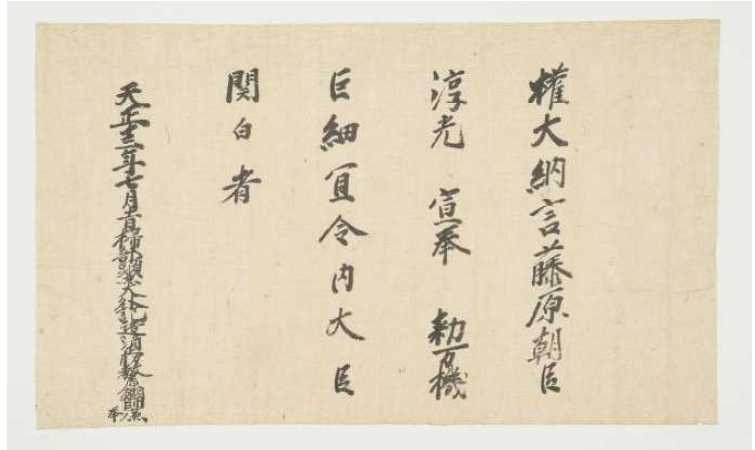 権大納言藤原朝臣
淳光 宣奉 勅万機
巨細宜令内大臣
関白者
天正十三年七月十一日掃部頭兼大外記造酒正奉